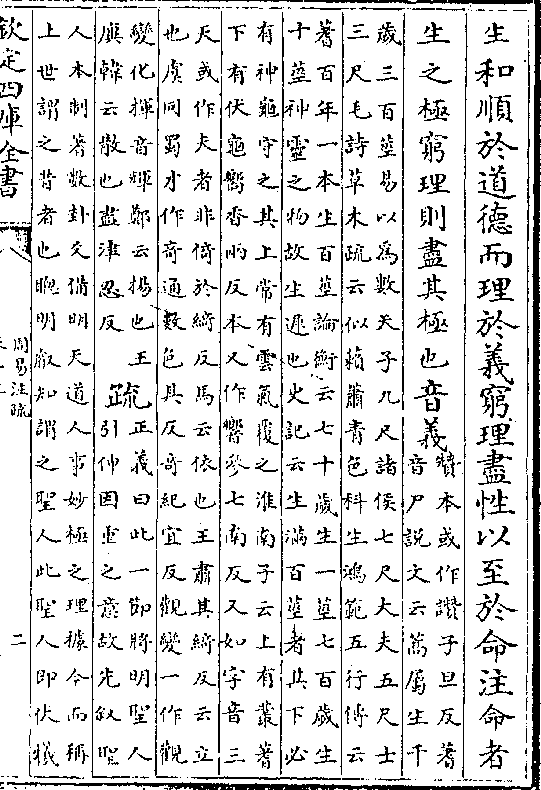 生和順於道德而理於義窮理盡性以至於命注命者
生之極窮理則盡其極也音義
贊本或作讚子旦反蓍
音尸說文云蒿屬生千
歲三百莖易以爲數天子九尺諸侯七尺大夫五尺士
三尺毛詩草木疏云似藾蕭青色科生鴻範五行傳云
蓍百年一本生百莖論衡云七十歲生一莖七百歲生
十莖神靈之物故生遲也史記云生滿百莖者其下必
有神龜守之其上常有雲氣覆之淮南子云上有叢蓍
下有伏龜嚮香兩反本又作響參七南反又如字音三
天或作夫者非倚於綺反馬云依也王肅其綺反云立
也虞同蜀才作奇通數色具反奇紀宜反觀變一作觀
變化揮音輝鄭云揚也王
廙韓云散也盡津忍反
疏
正義曰此一節將明聖人
引伸因重之意故先叙聖
人本制蓍數卦爻備明天道人事妙極之理據今而稱
上世謂之昔者也聰明叡知謂之聖人此聖人即伏犧
欽定四庫全書
周易注疏
二